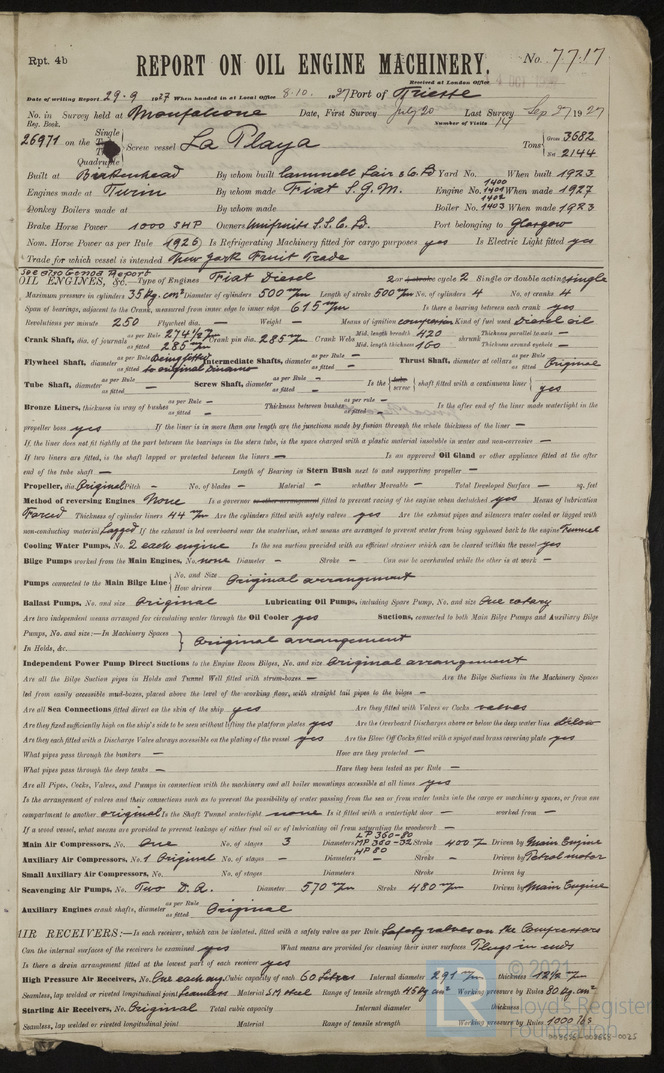 Rpt. 4b
REPORT ON OIL ENGINE MACHINERY. No. 7717
Received at London Office
Date of writing Report 29.9 1927 When handed in at Local Office 8.10. 1927 Port of Trieste
No. in Survey held at Monfalcone Date, First Survey July 20 Last Survey Sep 27 1927
Reg. Book. Number of Visits 14
26971 on the Single Screw vessel La Playa Tons Gross 3682
Quadruple Net 2144
Built at Birkenhead By whom built Cammell Lair & Co Ld Yard No. When built 1923
Engines made at Turin By whom made Fiat S.G.M. Engine No. 1400 1401 1402 When made 1927
Donkey Boilers made at By whom made Boiler No. 1403 When made 1923
Brake Horse Power 1000 SHP Owners Unifruits S.S. C. Ld. Port belonging to Glasgow
Nom. Horse Power as per Rule 1926 Is Refrigerating Machinery fitted for cargo purposes yes Is Electric Light fitted yes
Trade for which vessel is intended New York Fruit Trade
See also Genoa Report
OIL ENGINES, &c. Type of Engines Fiat Diesel 2 or 4 stroke cycle 2 Single or double acting single
Maximum pressure in cylinders 35 kg. cm² Diameter of cylinders 500 m/m Length of stroke 500 m/m No. of cylinders 4 No. of cranks 4
Span of bearings, adjacent to the Crank, measured from inner edge to inner edge 615 m/m Is there a bearing between each crank yes
Revolutions per minute 250 Flywheel dia. – Weight – Means of ignition compression Kind of fuel used Diesel oil
Crank Shaft, dia. of journals as per Rule 274 1/2 m/m as fitted 285 m/m Crank pin dia. 285 m/m Crank Webs Mid. length breadth 420 Mid. length thickness 160 shrunk Thickness parallel to axis – Thickness around eyehole –
Flywheel Shaft, diameter as per Rule Being fitted as fitted to original Dinamo Intermediate Shafts, diameter as per Rule – as fitted – Thrust Shaft, diameter at collars as per Rule as fitted Original
Tube Shaft, diameter as per Rule – as fitted – Screw Shaft, diameter as per Rule – as fitted – Is the tube screw shaft fitted with a continuous liner yes
Bronze Liners, thickness in way of bushes as per Rule – as fitted – Thickness between bushes as per rule – as fitted – Is the after end of the liner made watertight in the
propeller boss yes If the liner is in more than one length are the junctions made by fusion through the whole thickness of the liner –
If the liner does not fit tightly at the part between the bearings in the stern tube, is the space charged with a plastic material insoluble in water and non-corrosive –
If two liners are fitted, is the shaft lapped or protected between the liners – Is an approved Oil Gland or other appliance fitted at the after
end of the tube shaft – Length of Bearing in Stern Bush next to and supporting propeller –
Propeller, dia Original Pitch – No. of blades – Material – whether Moveable – Total Developed Surface – sq. feet
Method of reversing Engines None Is a governor or other arrangement fitted to prevent racing of the engine when declutched yes Means of lubrication
Forced Thickness of cylinder liners 44 m/m Are the cylinders fitted with safety valves yes Are the exhaust pipes and silencers water cooled or lagged with
non-conducting material Lagged If the exhaust is led overboard near the waterline, what means are arranged to prevent water from being syphoned back to the engine Funnel
Cooling Water Pumps, No. 2 each engine Is the sea suction provided with an efficient strainer which can be cleared within the vessel yes
Bilge Pumps worked from the Main Engines, No. none Diameter – Stroke – Can one be overhauled while the other is at work –
Pumps connected to the Main Bilge Line No. and Size How driven Original arrangement
Ballast Pumps, No. and size Original Lubricating Oil Pumps, including Spare Pump, No. and size One rotary
Are two independent means arranged for circulating water through the Oil Cooler yes Suctions, connected to both Main Bilge Pumps and Auxiliary Bilge
Pumps, No. and size:—In Machinery Spaces
In Holds, &c. Original arrangement
Independent Power Pump Direct Suctions to the Engine Room Bilges, No. and size Original arrangement
Are all the Bilge Suction pipes in Holds and Tunnel Well fitted with strum-boxes – Are the Bilge Suctions in the Machinery Spaces
led from easily accessible mud-boxes, placed above the level of the working floor, with straight tail pipes to the bilges –
Are all Sea Connections fitted direct on the skin of the ship yes Are they fitted with Valves or Cocks valves
Are they fixed sufficiently high on the ship's side to be seen without lifting the platform plates yes Are the Overboard Discharges above or below the deep water line below
Are they each fitted with a Discharge Valve always accessible on the plating of the vessel yes Are the Blow Off Cocks fitted with a spigot and brass covering plate yes
What pipes pass through the bunkers – How are they protected –
What pipes pass through the deep tanks – Have they been tested as per Rule –
Are all Pipes, Cocks, Valves, and Pumps in connection with the machinery and all boiler mountings accessible at all times yes
Is the arrangement of valves and their connections such as to prevent the possibility of water passing from the sea or from water tanks into the cargo or machinery spaces, or from one
compartment to another original Is the Shaft Tunnel watertight none Is it fitted with a watertight door – worked from –
If a wood vessel, what means are provided to prevent leakages of either fuel oil or of lubricating oil from saturating the woodwork –
Main Air Compressors, No. One No. of stages 3 Diameters LP 360-80 MP 360-32 HP 80 Stroke 400 m/m Driven by Main Engine
Auxiliary Air Compressors, No. 1 Original No. of stages – Diameters – Stroke – Driven by Petrol motor
Small Auxiliary Air Compressors, No. No. of stages Diameters Stroke Driven by
Scavenging Air Pumps, No. Two D.A. Diameter 570 m/m Stroke 480 m/m Driven by Main Engine
Auxiliary Engines crank shafts, diameter as per Rule as fitted Original
AIR RECEIVERS:—Is each receiver, which can be isolated, fitted with a safety valve as per Rule Safety valves on the Compressors
Can the internal surfaces of the receivers be examined yes What means are provided for cleaning their inner surfaces Plugs in ends
Is there a drain arrangement fitted at the lowest part of each receiver yes
High Pressure Air Receivers, No. One each eng Cubic capacity of each 60 Litres Internal diameter 291 m/m thickness 12 1/2 m/m
Seamless, lap welded or riveted longitudinal joint Seamless Material S.M. steel Range of tensile strength 45 kg cm² Working pressure by Rules 80 kg. cm²
Starting Air Receivers, No. Original Total cubic capacity Internal diameter thickness
Seamless, lap welded or riveted longitudinal joint Material Range of tensile strength Working pressure by Rules 1000 lbs
© 2021
Lloyd's Register
Foundation